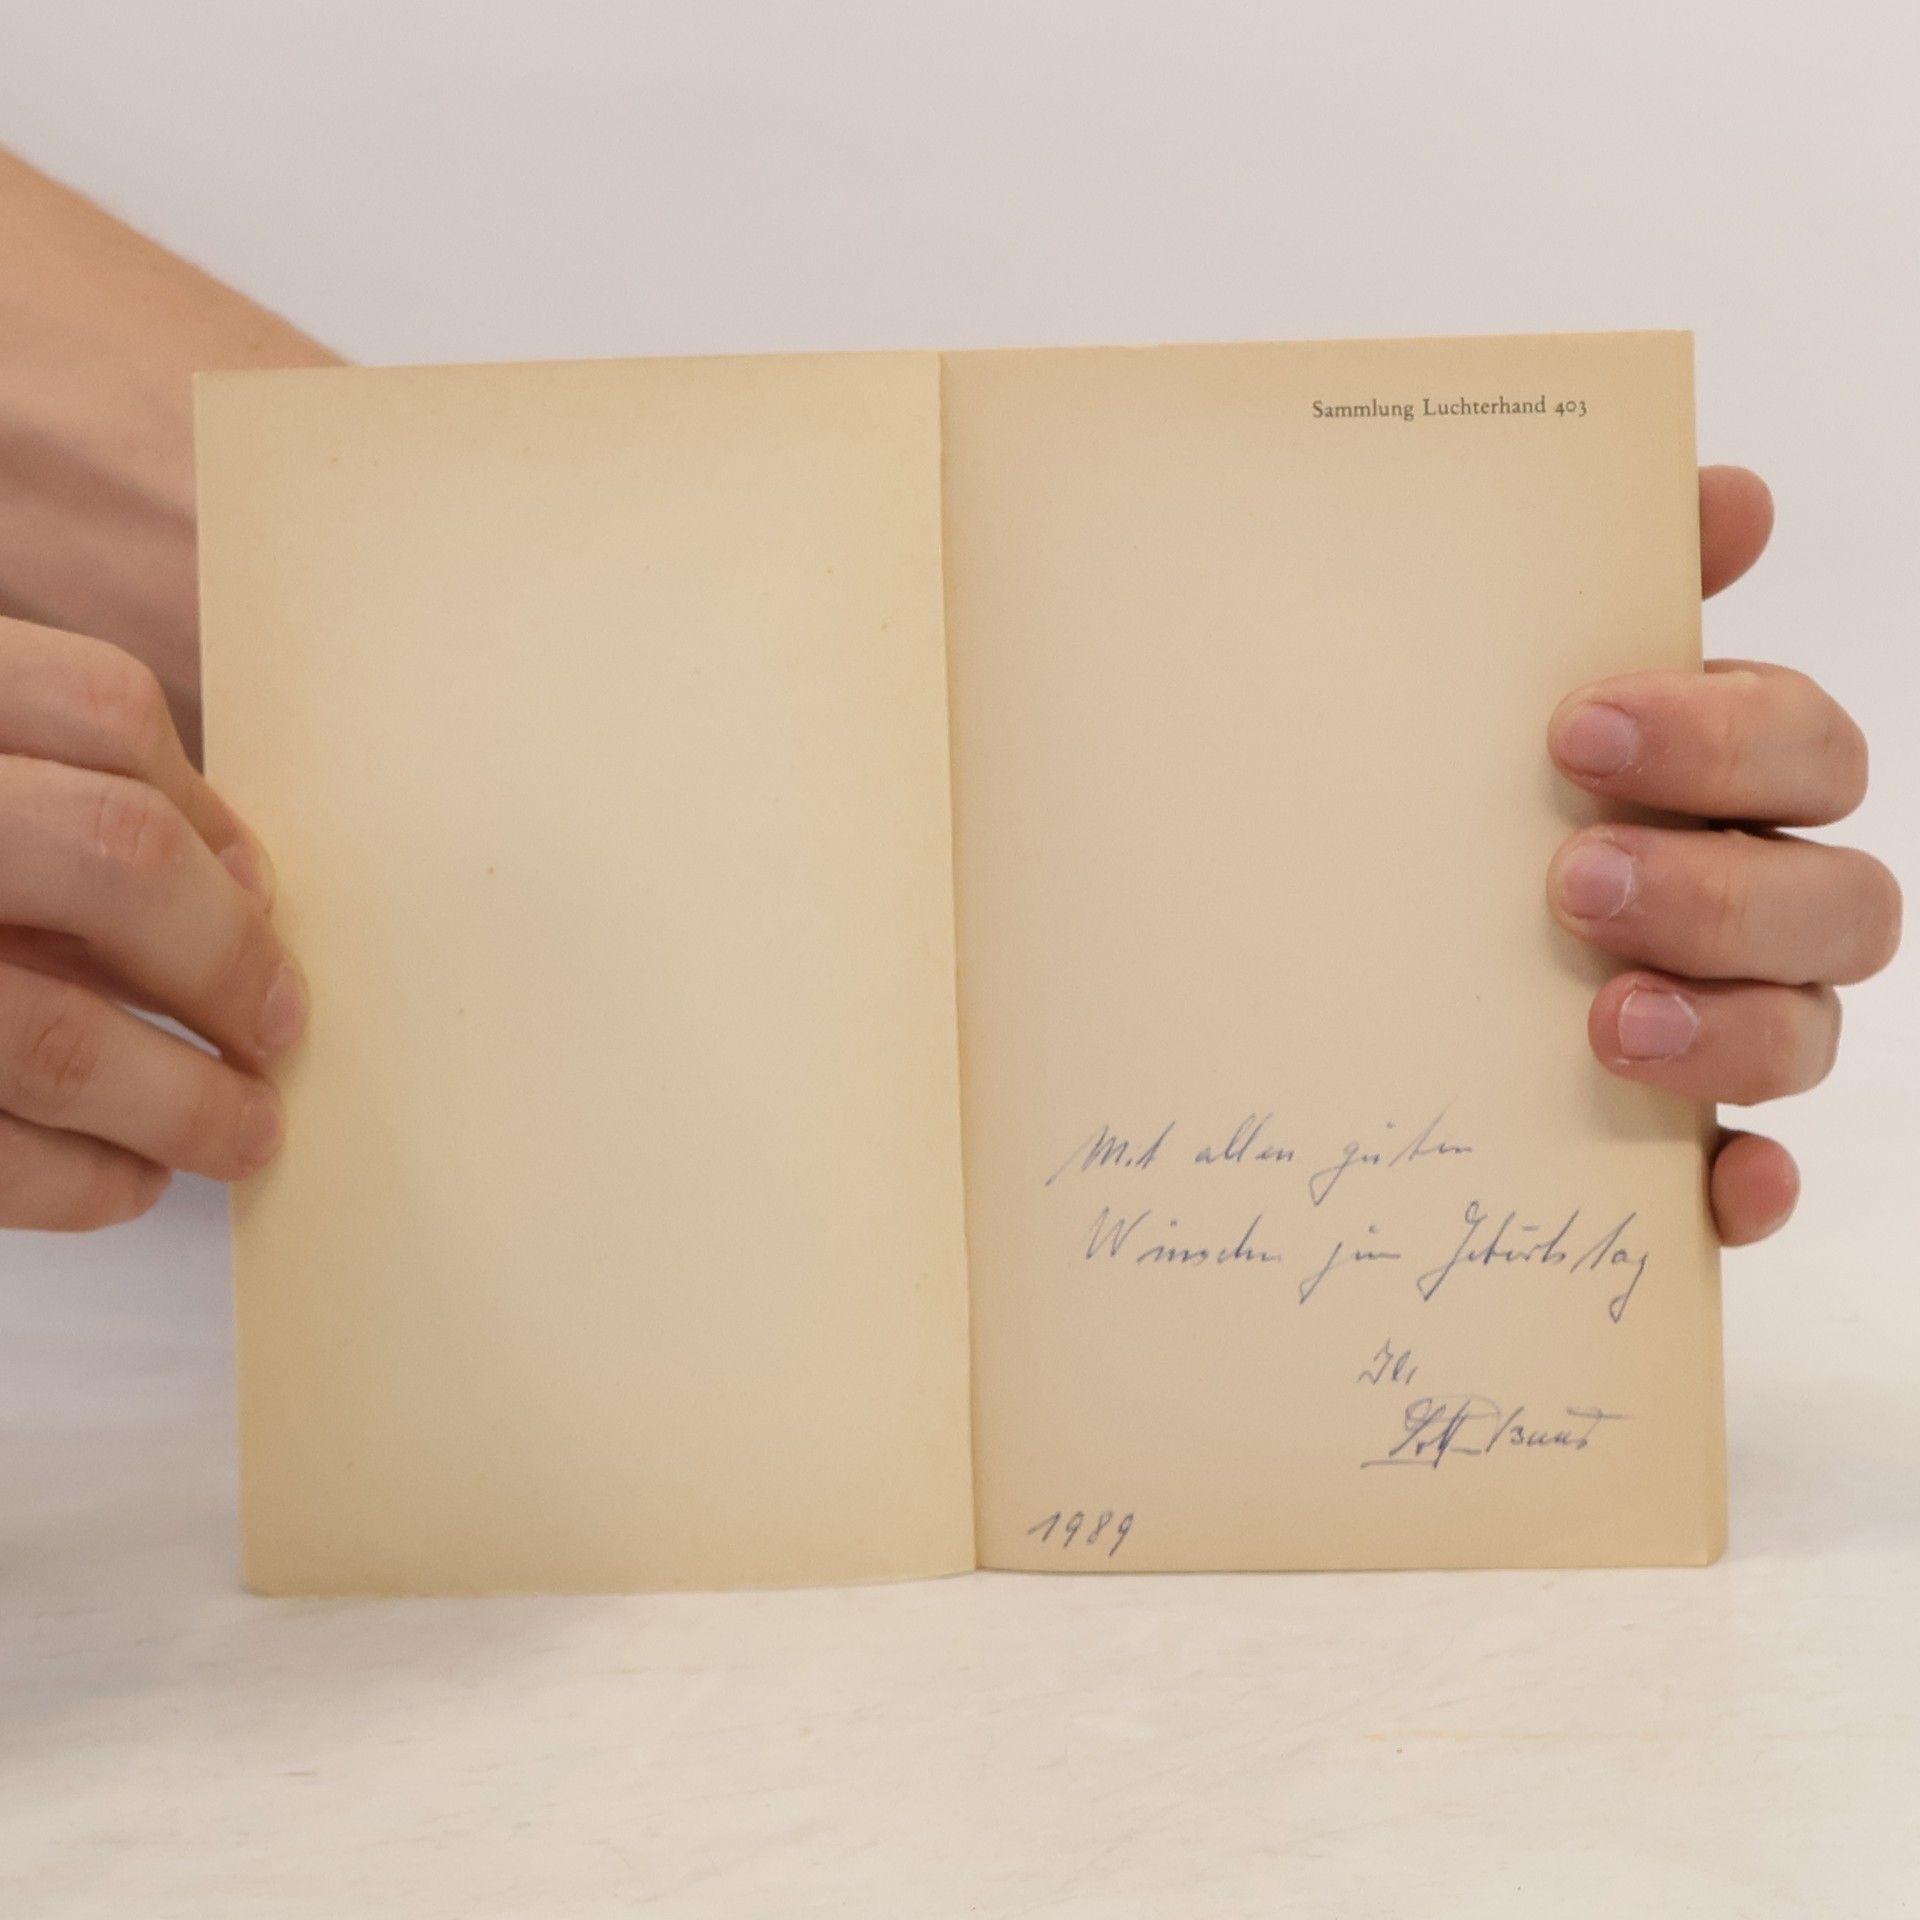 Sammlung Luchterhand 403
Mit allen guten
Wünschen zum Geburtstag
Ihr
1989